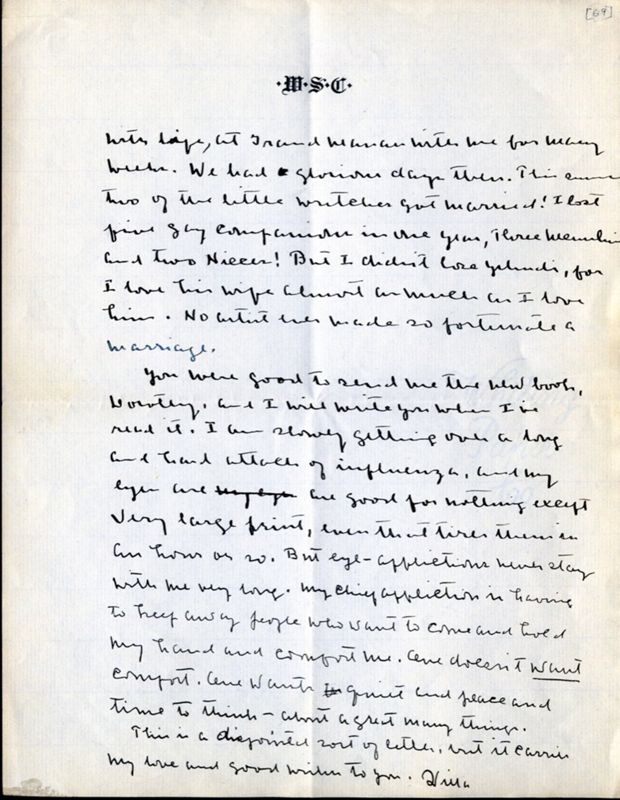 [69]
·W·S·C·
at Grand Manan with me for many
weeks. We had glorious days there. This
two of the little wretches got married! I lost
five gay companions in one year, three Menuhins
and two Nieces! But I didn't lose Yehudi, for
I love his wife almost as much as I love
him. No artist ever made so fortunate a
marriage.
You were good to send me the new book,
Dorothy, and I will write you when I've
read it. I am slowly getting over a long
and hard attack of influenza, and my
eyes are my eyes are good for nothing except
very large print, even that tires them in
an hour or so. But eye-afflictions never stay
with me very long. My chief affliction is having
to keep away people who want to come and hold
my hand and comfort me. One doesn't want
comfort. One wants quiet and peace and
time to think – about a great many things.
This is a disjointed sort of letter, but it carries
my love and good wishes to you. Willa